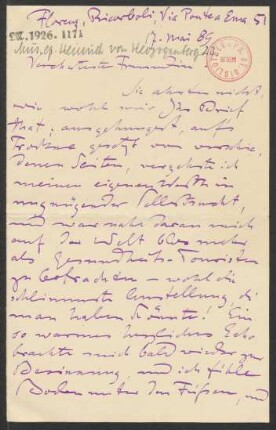 Florenz, Ricorboli, Via Ponte a Ema 51
12. Mai 86
Ac. 1926. 1171
Mus. ep. Heinrich von Herzogenberg
Verehrteste Freundin
Sie ahnten nicht,
wie wohl mir Ihr Brief
that; ausgehungert, aufs
Trockne gesetzt von verschie-
denen Seiten, vergehrte ich
meinen eigenen in
ungenügender Selbstsucht,
und war nahe daran mich
auf der Welt blos mehr
als Gesundheits-Touristen
zu betrachten – wohl die
schlimmste Anstellung, die
man haben könnte! Ein
so warmes herzliches Echo
brachte mich bald wieder zur
Besinnung, und ich fühle
Boden unter den Füssen, und